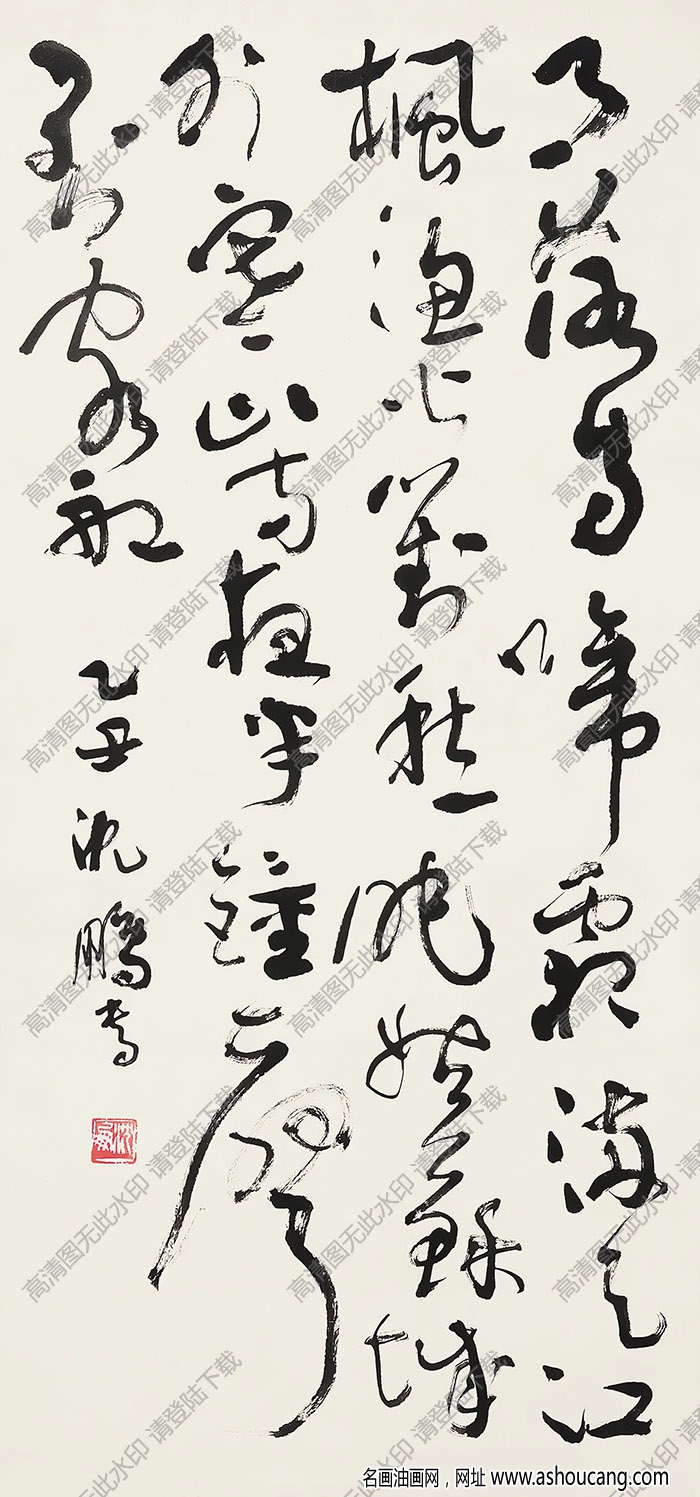 月落烏啼霜滿天江
楓漁火對愁眠姑蘇城
外寒山寺夜半鐘聲
到客船 乙丑沈鵬書
高清图无此水印 请登陆下载
名画油画网，网址 www.ashoucang.com